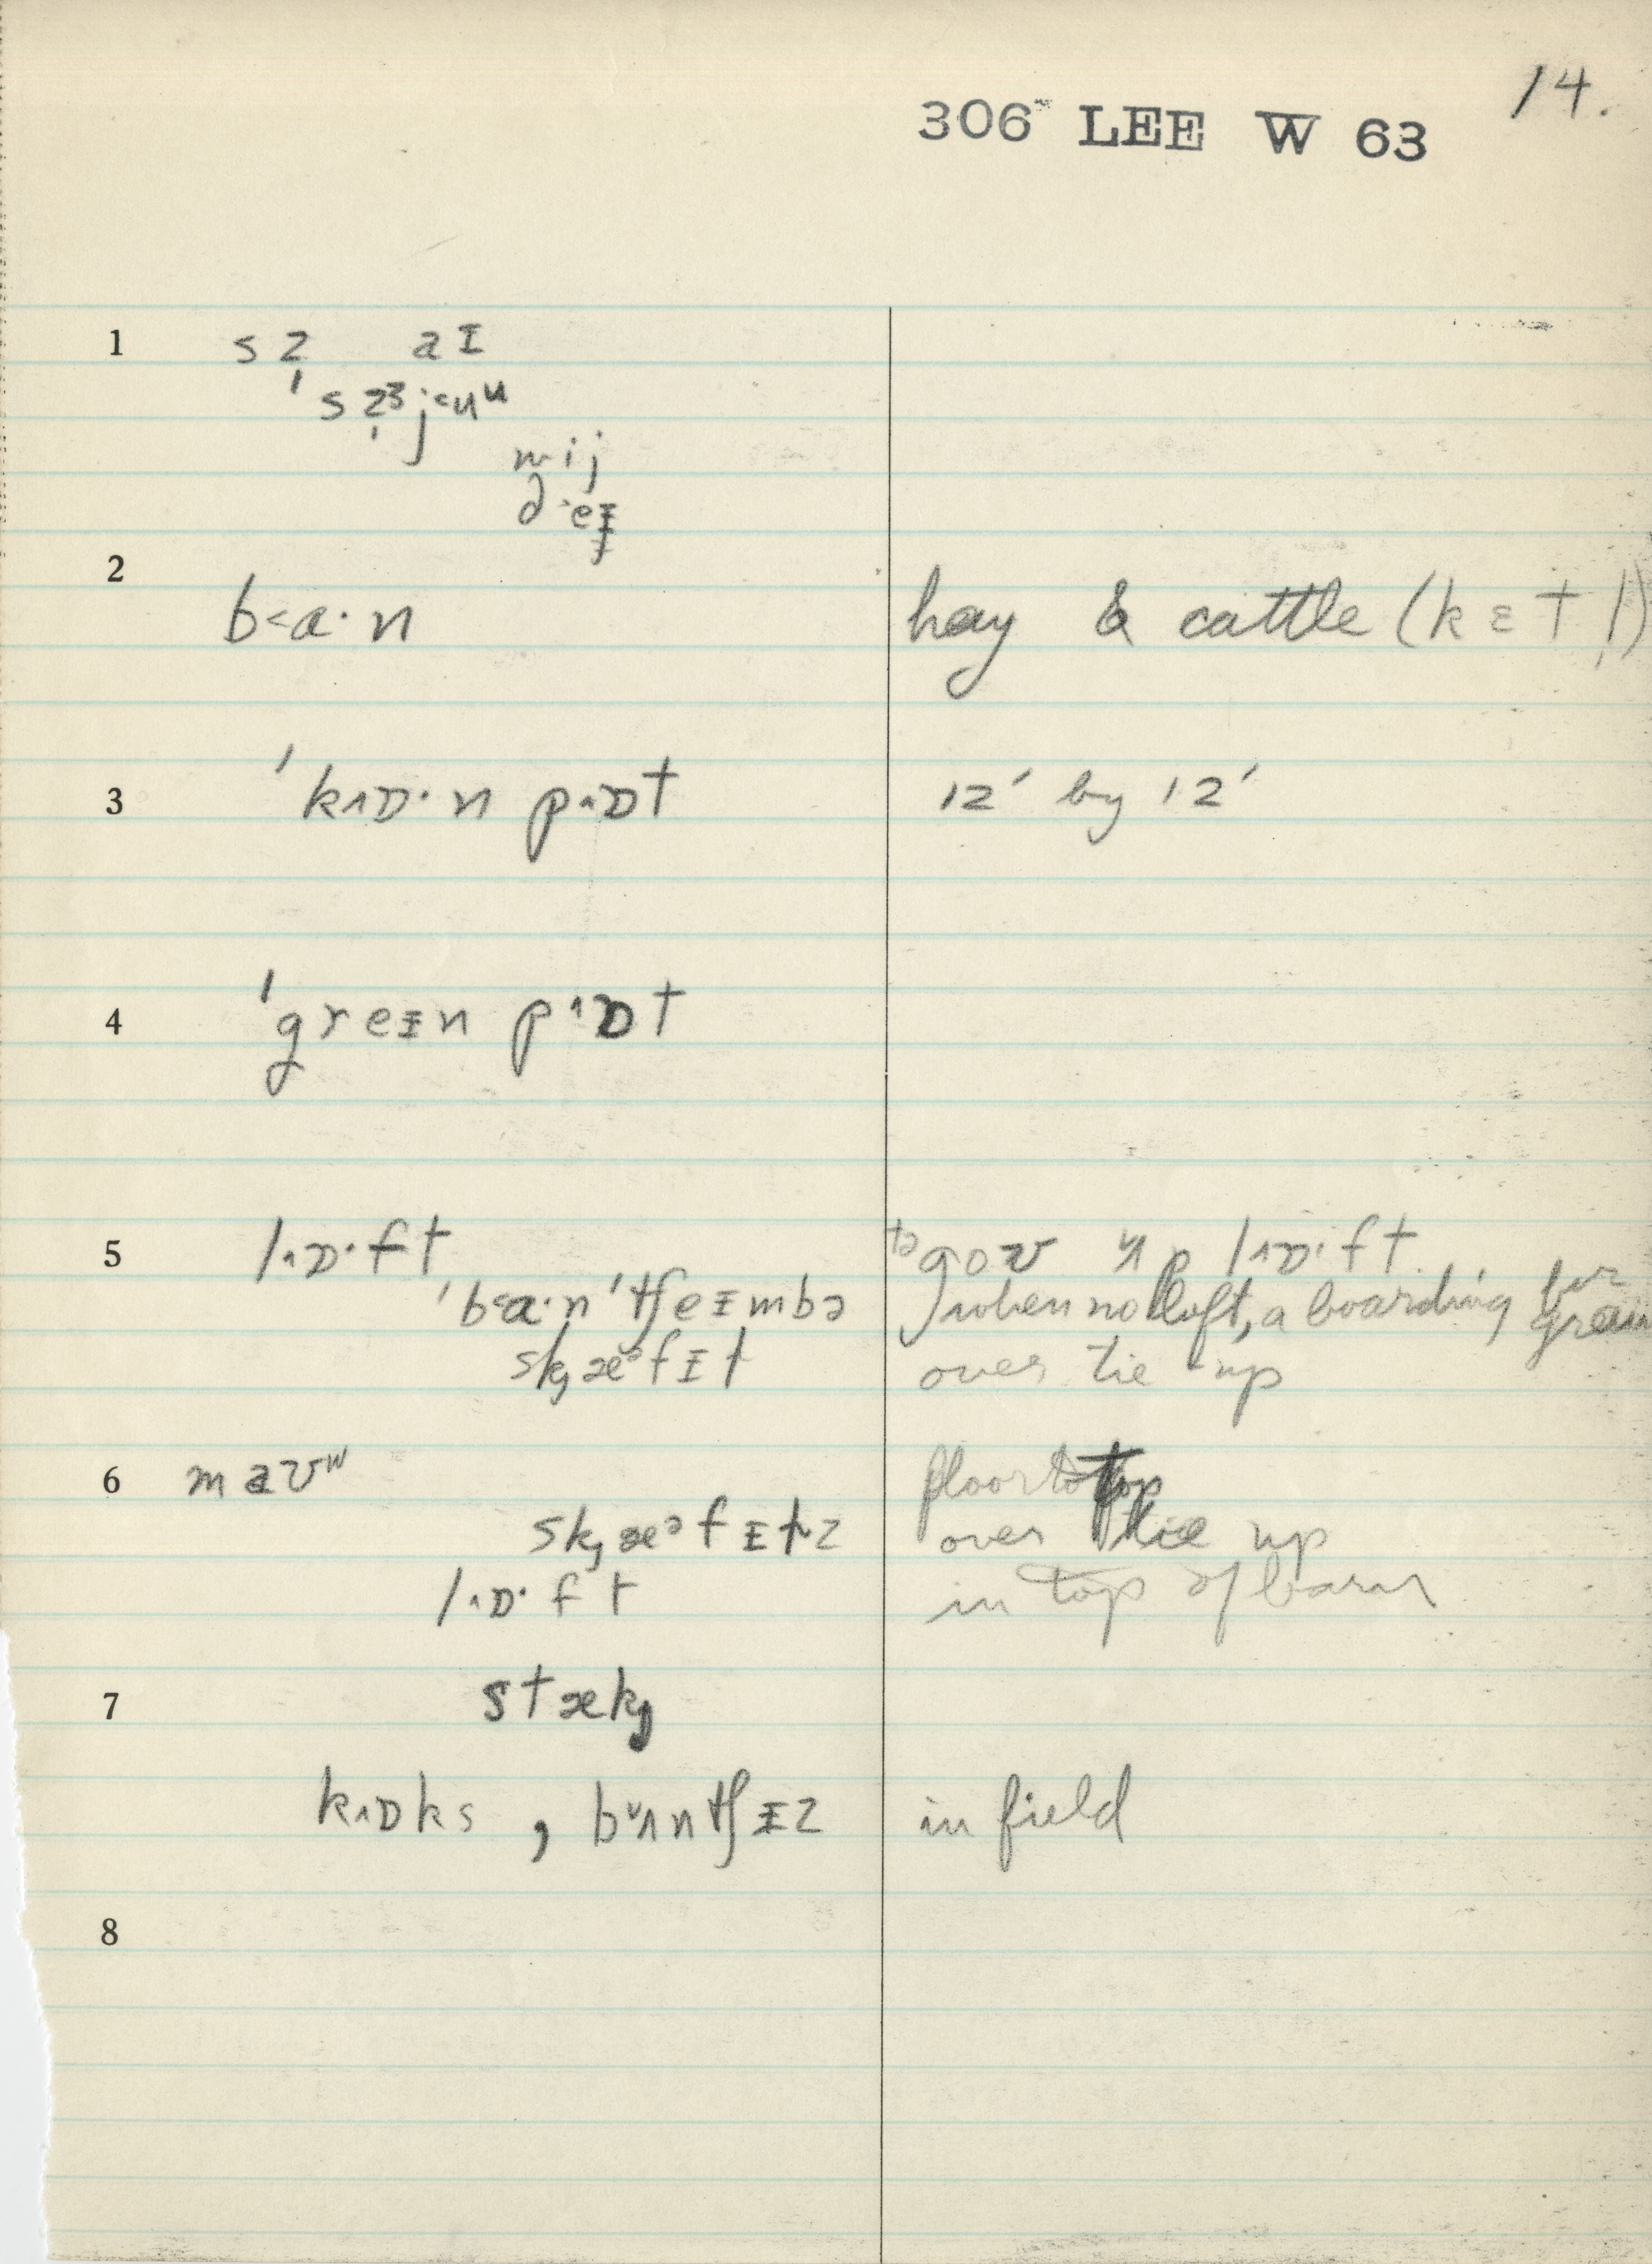 14.
306 LEE W 63
1 s z̩ aɪ
ˈs z̩ᶾ j˂uᵘ
mij
ðˑeᵻ
2
b˂a·n hay & cattle (kɛtl̩)
3 ˈk˄ɒ·n p˄ɒt 12′ by 12′
4 ˈgreᵻn p˄ɒt
5 l˄ɒ·ft to goʊ ʌp l˄ɒ·ft
ˈb˂a·nˈtʃeᵻmbə when no loft, a boarding for grain
sk̡æᵊfᵻt over tie up
6 maʊʷ floor to top
sk̡æᵊfᵻts over tie up
l˄ɒ·ft in top of barn
7 stæk̡
k˄ɒks , bʌ˅ntʃᵻz in field
8